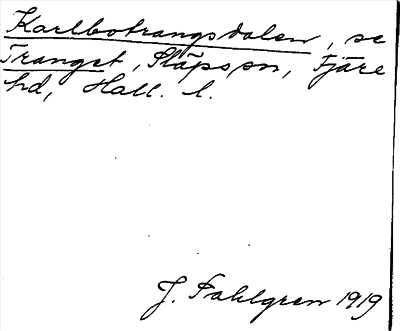 Karlbotrangsdalen, se
Tranget, Släps sn, Fjäre
hd, Hall. l.
J. Sahlgren 1919